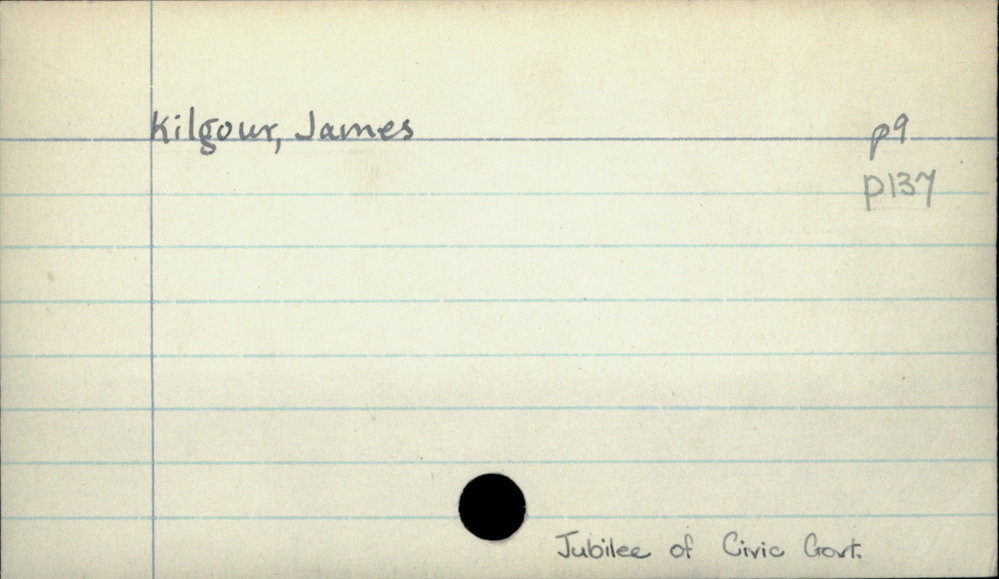 Kilgour, James
p9
p137
Jubilee of Civic Govt.